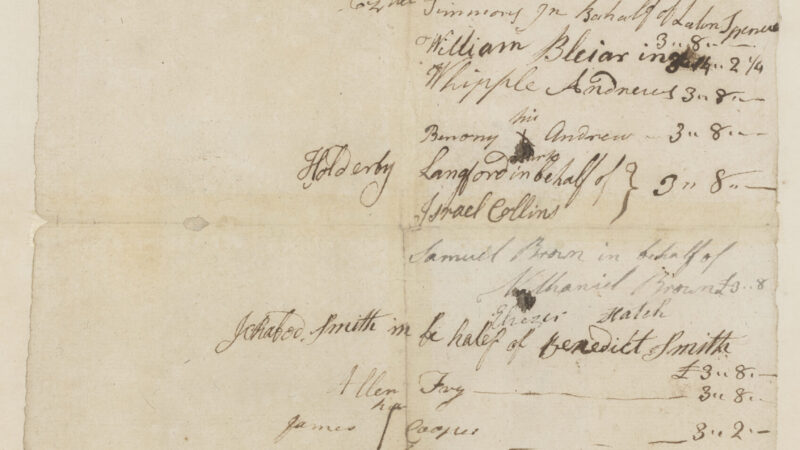 Timmons In Behalf of Spencer
William Blejaring 4 " 2 1/4
3 " 8 " —
Whipple Andrews 3 " 8 " —
his
Benony X Andrew — 3 " 8 " —
mark
Holderby Langford in behalf of } 3 " 8 " —
Israel Collins
Samuel Brown in behalf of
Nathaniel Brown £3 " 8
Ebezer Hatch
Ichabod Smith in be half of Benedict Smith
£ 3 " 8 " —
Allen Fry — 3 " 8 " —
James Cooper — 3 " 2 " —